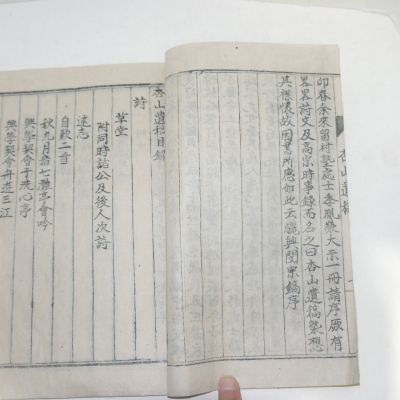 卯春余來留村塾處士李胤槃大示一冊請序厥有
畧畧詩文及高宗時事錄而名之曰杏山遺稿槃想
其襟懷故因書所應如此云驪興閔泳鎬序
杏山遺稿
杏山遺稿目錄
詩
草堂
附同時諸公及後人次詩
述志
自歎二首
秋九月旣七灘亭會吟
興學契會于洗心亭
興學契會舟遊三江